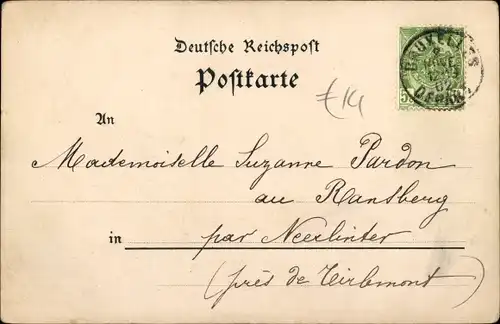 Deutsche Reichspost
Postkarte
£14
An
Mademoiselle Suzanne Pardon
au Ransberg
in par Neerlinter
(près de Tirlemont)
BRUXELLES
DEPART
5